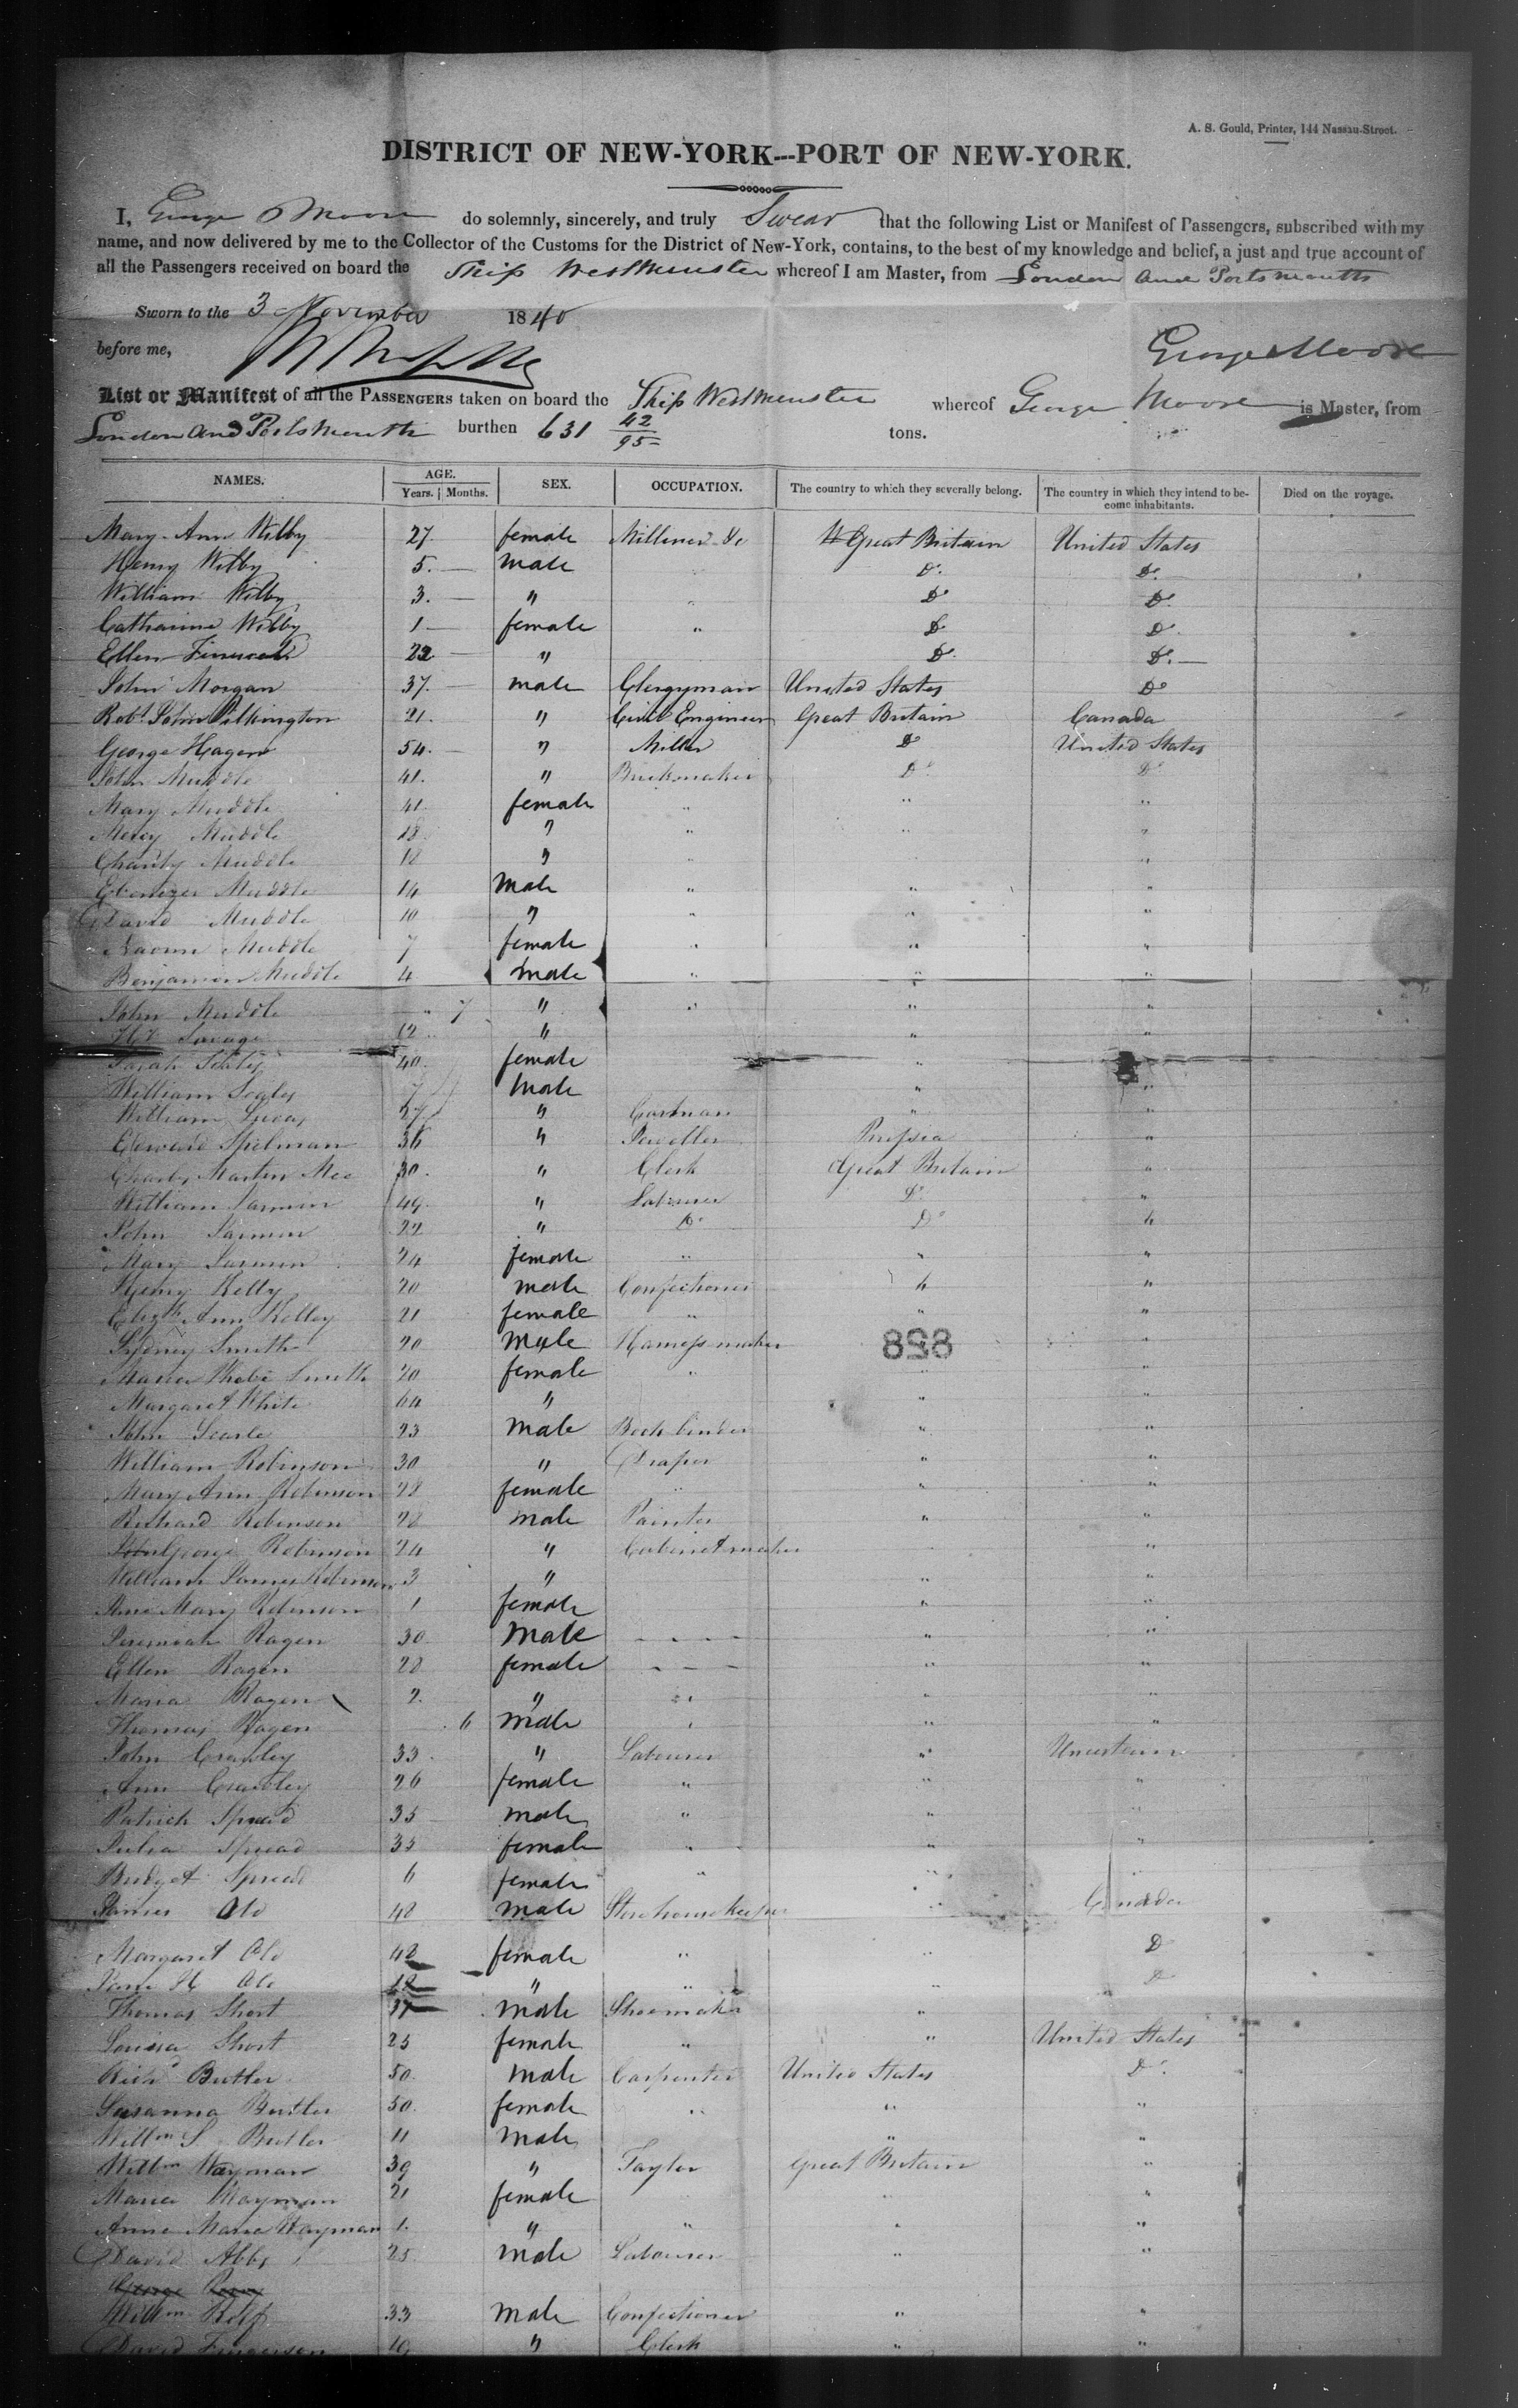 A. S. Gould, Printer, 144 Nassau-Street.
DISTRICT OF NEW-YORK---PORT OF NEW-YORK.
I, George Moore do solemnly, sincerely, and truly Swear that the following List or Manifest of Passengers, subscribed with my
name, and now delivered by me to the Collector of the Customs for the District of New-York, contains, to the best of my knowledge and belief, a just and true account of
all the Passengers received on board the Ship Westminster whereof I am Master, from London and Portsmouth
Sworn to the 3 November 1840
before me,
George Moore
List or Manifest of all the PASSENGERS taken on board the Ship Westminster whereof George Moore is Master, from
London and Portsmouth burthen 631 42/95 tons.
NAMES. AGE. SEX. OCCUPATION. The country to which they severally belong. The country in which they intend to be- Died on the voyage.
Years. Months. come inhabitants.
Mary Ann Wilby 27. female Milliner &c Great Britain United States
Henry Wilby 5. male Do. Do.
William Wilby 3. " Do Do.
Catharine Wilby 1 female " Do. Do.
Ellen 22 " Do. Do.
John Morgan 37. male Clergyman United States Do
Robt. John Pilkington 21. " Civil Engineer Great Britain Canada
George Hagen 54. " Miller Do United States
John Muddle 41. " Brickmaker Do. Do
Mary Muddle 41 female " " "
Mercy Muddle 18 " " " "
Charity Muddle 18 " " " "
Ebenezer Muddle 14 male " " "
David Muddle 10 " " " "
Naomi Muddle 7 female " " "
Benjamin Muddle 4 male " " "
John Muddle " 7 " " " "
Savage 12 " " "
Sarah Scales 40 female " "
William Scales 7 male " "
William Lucas 27 " Cartman " "
Edward Spelman 36 " Jeweller Prussia "
Charles Martin Mee 30. " Clerk Great Britain "
William Jarmin 49. " Labourer Do "
John Jarmin 22 " Do. Do "
Mary Jarmin 24 female " " "
Henry Kelly 20 male Confectioner " "
Elizth. Ann Kelley 21 female " " "
Sydney Smith 20 male Harness maker 858 "
Maria Phebe Smith 20 female " "
Margaret White 64 " " "
John Searle 23 male Book binder " "
William Robinson 30 " Draper " "
Mary Ann Robinson 28 female " " "
Richard Robinson 28 male Painter " "
George Robinson 24 " Cabinet maker "
William James Robinson 3 " " "
Ann Mary Robinson 1 female " "
Jeremiah Ragen 30 male - - - - " "
Ellen Ragen 28 female - - - " "
Maria Ragen 2. " " " "
Thomas Ragen 6 male " " "
John Crawley 33 " Labourer " Uncertain
Ann Crawley 26 female " " "
Patrick Spread 35 male " " "
Julia Spread 35 female " " "
Bridget Spread 6 female " " "
James Old 48 male Storehouse keeper " Canada
Margaret Old 48 female " " Do
Jane H Old 12 " " " Do
Thomas Short 37 male Shoemaker "
Louisa Short 25 female " " United States
Richd Butler 50. male Carpenter United States Do.
Susanna Butler 50. female " " "
Willm S Butler 11 male " "
Willm Wayman 39 " Taylor Great Britain "
Maria Wayman 21 female " "
Anne Maria Wayman 1. " " " "
David Abbs 25 male Labourer " "
Willm Rolf 33 male Confectioner " "
David 19 " Clerk " "